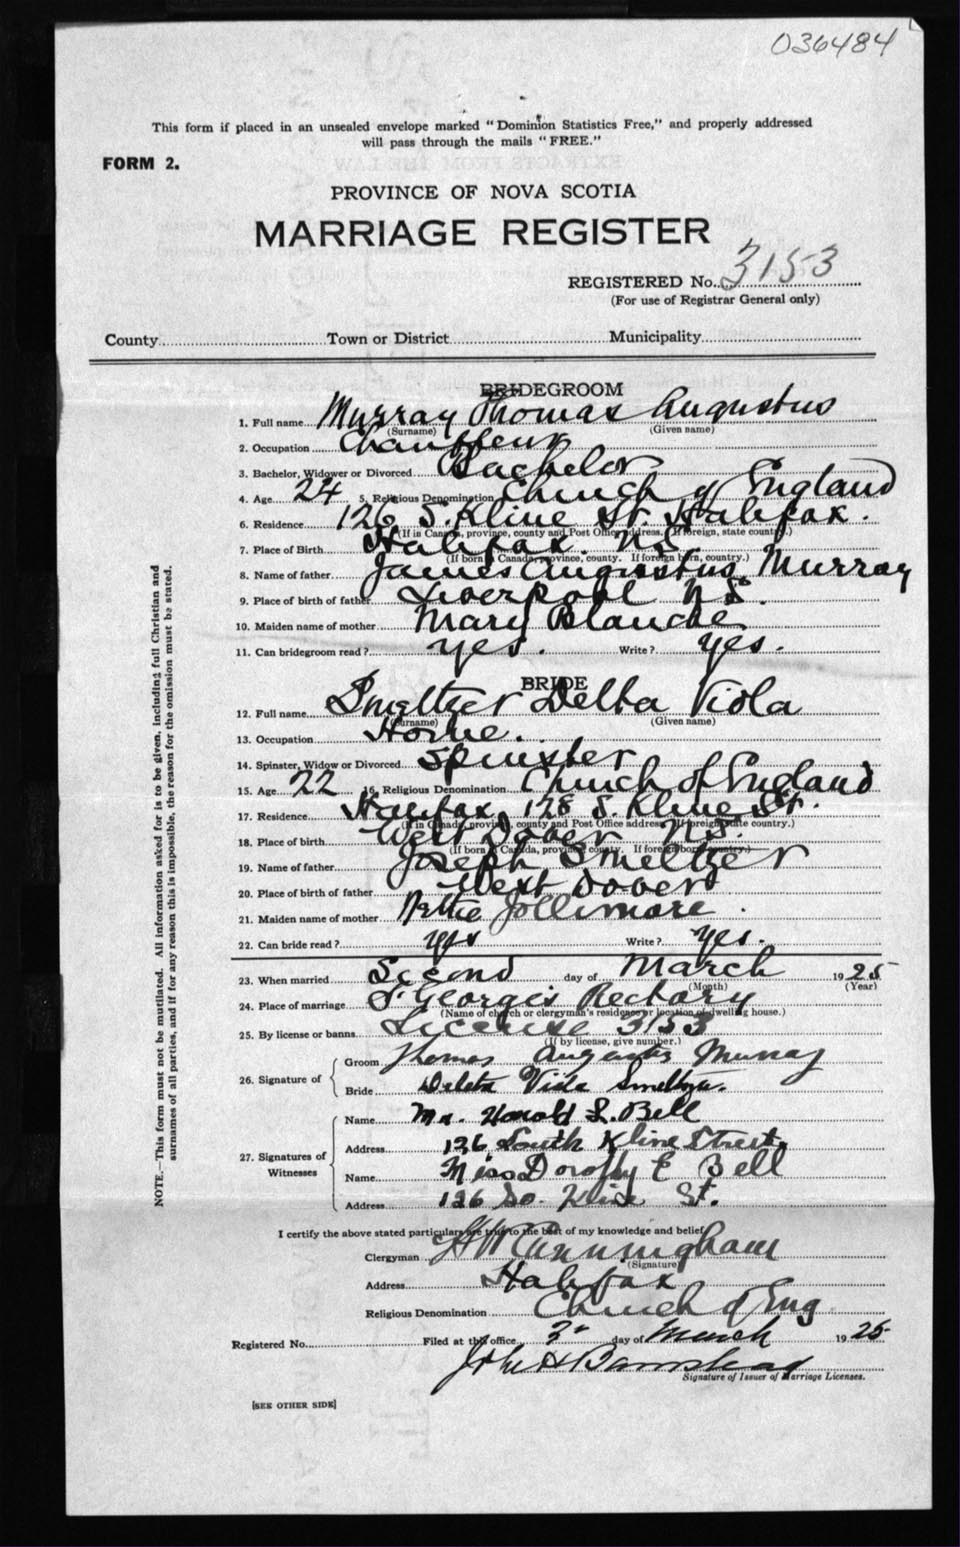 036484
This form if placed in an unsealed envelope marked "Dominion Statistics Free," and properly addressed
will pass through the mails "FREE."
FORM 2.
PROVINCE OF NOVA SCOTIA
MARRIAGE REGISTER
REGISTERED No. 3153
(For use of Registrar General only)
County Town or District Municipality
BRIDEGROOM
1. Full name Murray Thomas Augustus
(Surname) (Given name)
2. Occupation Chauffeur
3. Bachelor, Widower or Divorced Bachelor
4. Age 24 5. Religious Denomination Church of England
6. Residence 126 S. Kline St. Halifax.
(If in Canada, province, county and Post Office address. If foreign, state country.)
7. Place of Birth Halifax. N.S.
(If born in Canada, province, county. If foreign born, country.)
8. Name of father James Augustus Murray
9. Place of birth of father Liverpool N.S.
10. Maiden name of mother Mary Blanche
11. Can bridegroom read? yes. Write? yes.
BRIDE
12. Full name Smeltzer Delta Viola
(Surname) (Given name)
13. Occupation Home.
14. Spinster, Widow or Divorced Spinster
15. Age 22 16. Religious Denomination Church of England
17. Residence Halifax, 128 S. Kline St.
(If in Canada, province, county and Post Office address. If foreign state country.)
18. Place of birth West Dover N.S.
(If born in Canada, province, county. If foreign born country.)
19. Name of father Joseph Smeltzer
20. Place of birth of father West Dover
21. Maiden name of mother Nettie Jollimore.
22. Can bride read? yes Write? yes.
23. When married Second day of March 1925
(Month) (Year)
24. Place of marriage St Georges Rectory
(Name of church or clergyman's residence or location of dwelling house.)
25. By license or banns License 3153
(If by license, give number.)
26. Signature of Groom Thomas Augustus Murray
Bride Deleta Viola Smeltzer.
27. Signatures of Witnesses Name Mr. Harold L. Bell
Address 126 South Kline Street.
Name Miss Dorothy E Bell
Address 126 So. Kline St.
I certify the above stated particulars are true to the best of my knowledge and belief
Clergyman H W Cunningham
(Signature)
Address Halifax
Religious Denomination Church of Eng
Registered No. Filed at this office 3 day of March 1925
John H Barnstead
Signature of Issuer of Marriage Licenses.
[SEE OTHER SIDE]
NOTE.—This form must not be mutilated. All information asked for is to be given, including full Christian and
surnames of all parties, and if for any reason this is impossible, the reason for the omission must be stated.